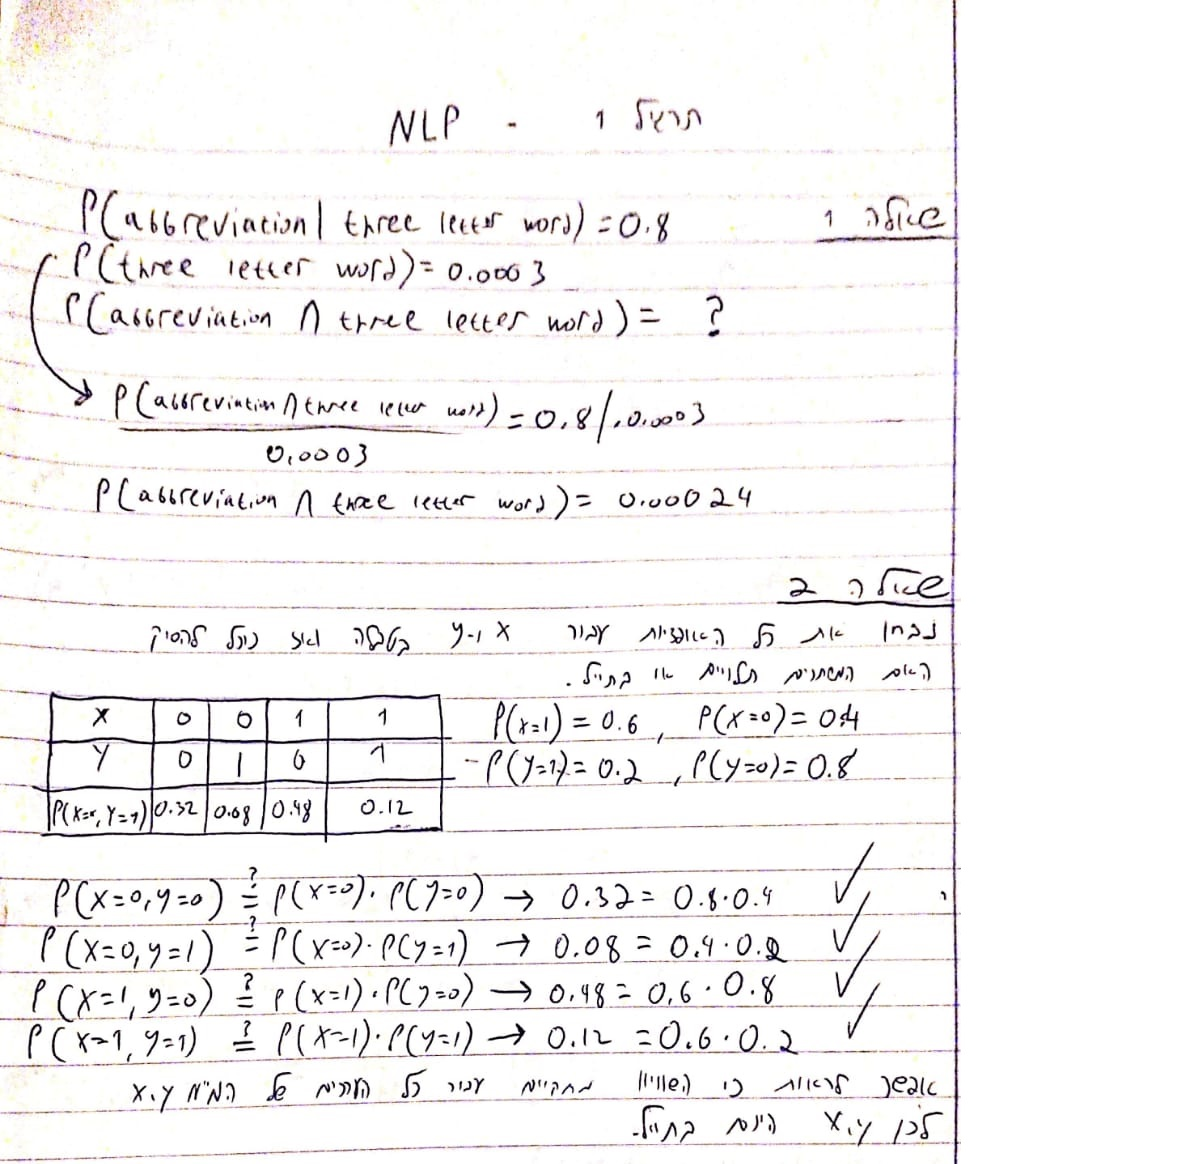 תרגיל 1 - NLP
שאלה 1
P(abbreviation | three letter word) = 0.8
P(three letter word) = 0.0003
P(abbreviation ∩ three letter word) = ?
P(abbreviation ∩ three letter word) / 0.0003 = 0.8 /·0.0003
P(abbreviation ∩ three letter word) = 0.00024
שאלה 2
נבחן את כל האופציות עבור X ו-Y בטבלה ואז נוכל להסיק
האם המשתנים תלויים או בת"ל.
X 0 0 1 1
Y 0 1 0 1
P(X=x, Y=y) 0.32 0.08 0.48 0.12
P(x=1) = 0.6 , P(X=0) = 0.4
P(y=1) = 0.2 , P(y=0) = 0.8
P(X=0, y=0) ≟ P(X=0)·P(y=0) → 0.32 = 0.8·0.4 ✓
P(X=0, y=1) ≟ P(X=0)·P(y=1) → 0.08 = 0.4·0.2 ✓
P(X=1, y=0) ≟ P(X=1)·P(y=0) → 0.48 = 0.6·0.8 ✓
P(X=1, y=1) ≟ P(X=1)·P(y=1) → 0.12 = 0.6·0.2 ✓
אפשר לראות כי השוויון מתקיים עבור כל הערכים של המ"מ X,Y
לכן X,Y הינם בת"ל.